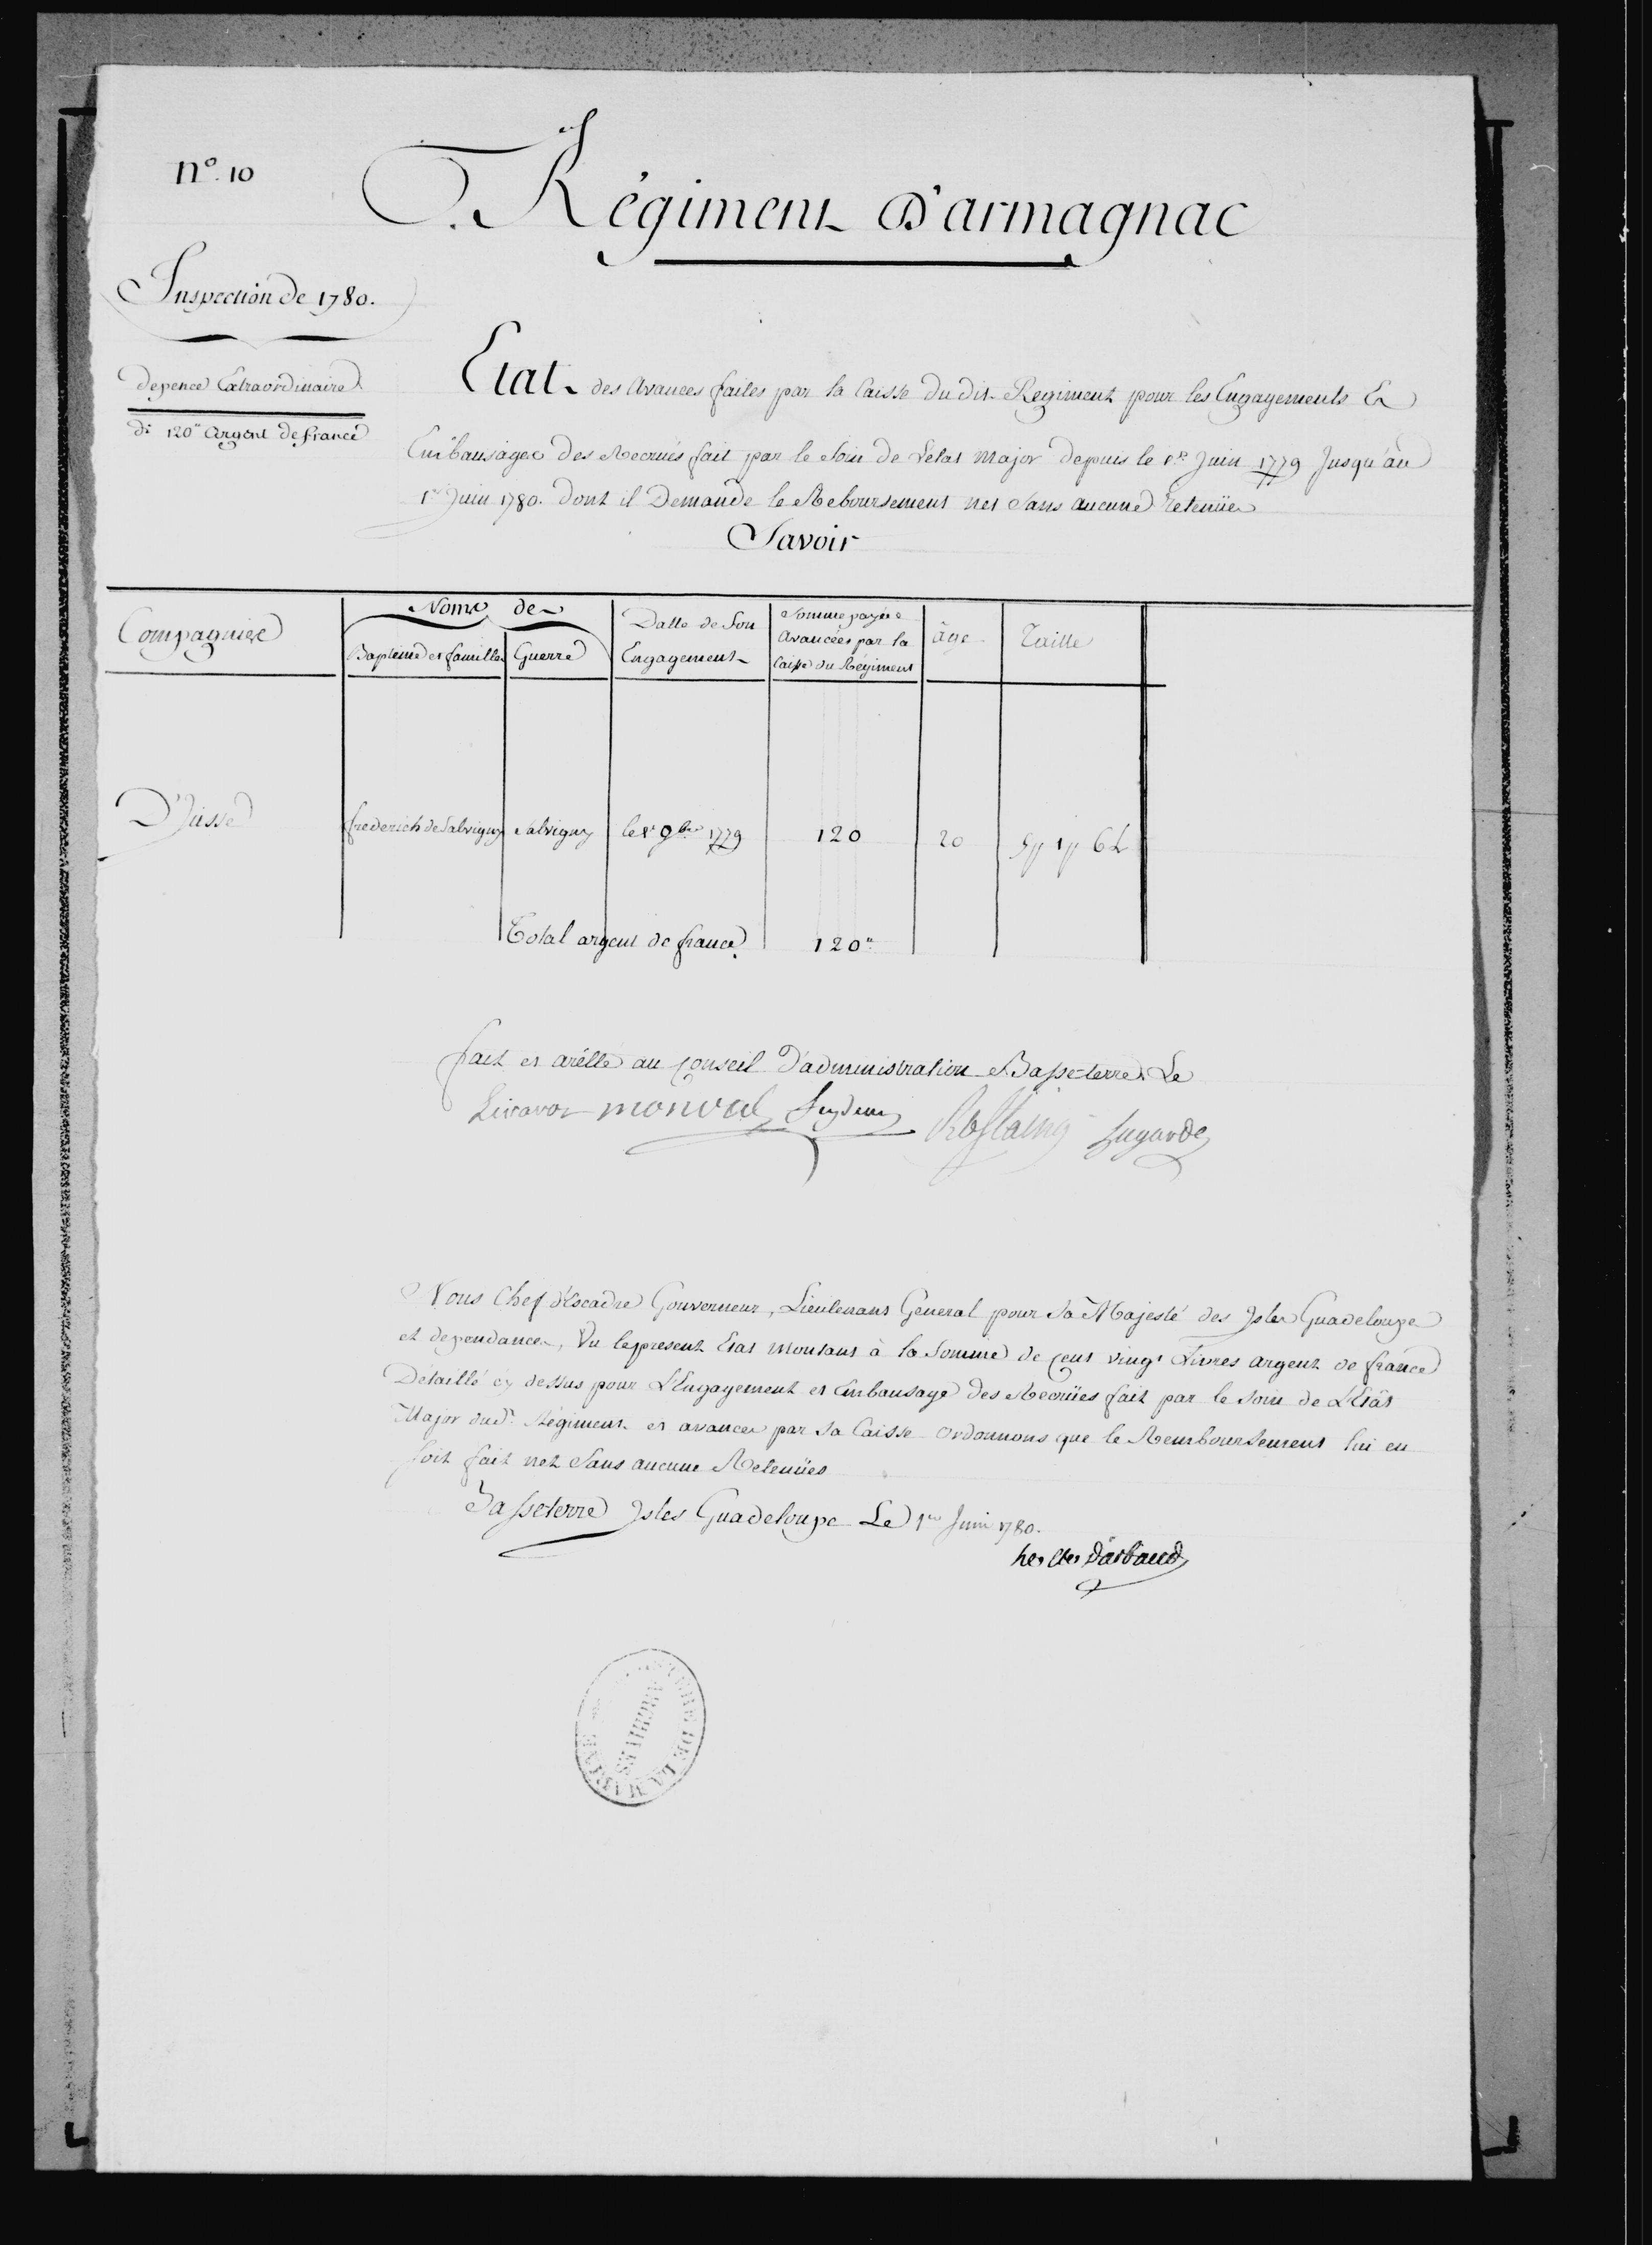 N.º 10
Régiment D'armagnac
Inspection de 1780.
depence Extraordinaire
di 120" Argent de france
Etat des avances faites par la Caisse du dit Regiment pour les Engagements Et
Embausages des Recrues fait par le Soin de L'etat Major depuis le 1er Juin 1779 Jusqu'au
1er Juin 1780. dont il Demande le Reboursement net Sans aucune retenües
Savoir
Compagnies
Noms de
Baptême et famille
Guerre
Datte de Son
Engagement
Somme payée
avancées par la
Caisse du Régiment
âge
Taille
D'Jusse
frederich de Salvigny
Salvigny
le 1er 9bre 1779
120
20
5p 1p 6L
Total argent de france
120"
fait et arêtté au Conseil D'administration Basse-terre Le
monval Rostaing Lagarde
Nous Chef d'Escadre Gouverneur, Lieutenant General pour Sa Majesté des Isles Guadeloupe
et dependances, Vu le present Etat montant à la Somme de Cent vingt Livres argent de france
Détaillé cy dessus pour L'Engagement et Embausage des Recrües fait par le Soin de L'Etat
Major dud. Régiment et avances par Sa Caisse Ordonnons que le Remboursement lui en
soit fait net Sans aucune Retenües
Basseterre Isles Guadeloupe Le 1er Juin 1780.
d'arbaud
DE LA MARINE
ARCHIVES